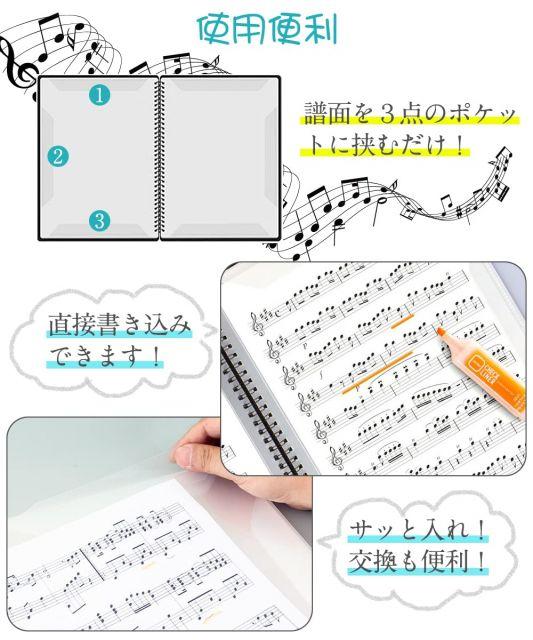 使用便利
①
②
③
譜面を３点のポケッ
トに挟むだけ！
直接書き込み
できます！
CHECK
LINER
サッと入れ！
交換も便利！